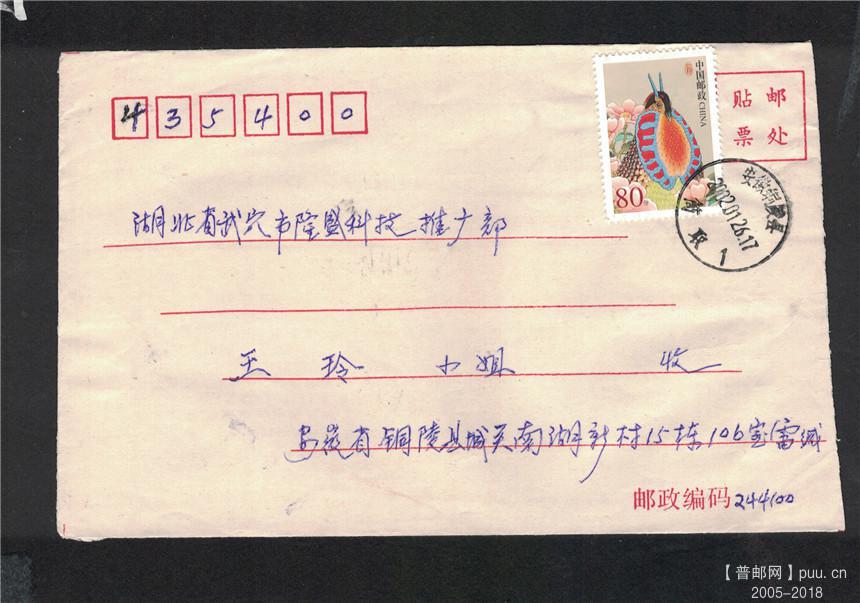 435400
中国邮政 CHINA
80分
贴 邮
票 处
2002.01.26.17
1
湖北省武穴市隆盛科技推广部
王 玲 小姐 收
安徽省铜陵县城关南湖新村15栋106室雷缄
邮政编码244100
【普邮网】puu.cn
2005-2018